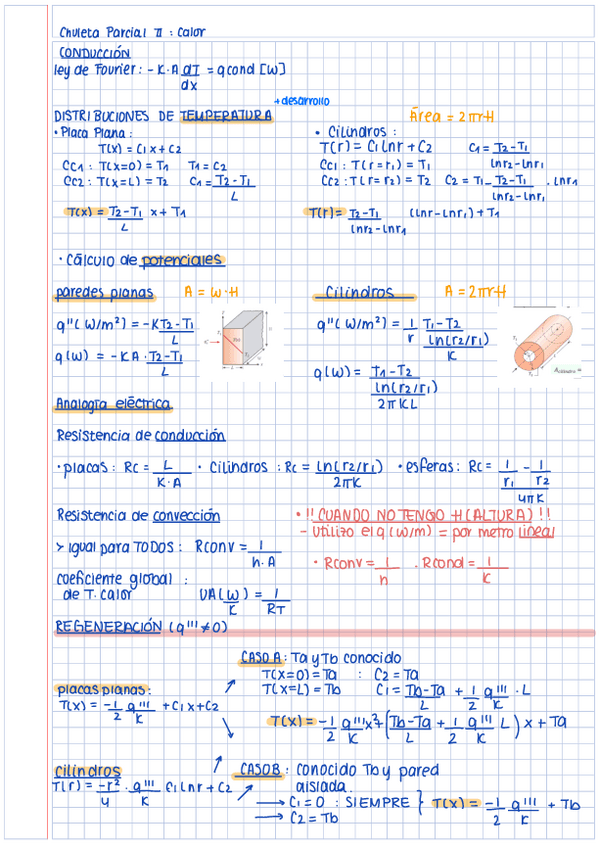 Chuleta Parcial II : Calor
CONDUCCIÓN
ley de Fourier : -K·A dT/dx = qcond [W]
DISTRIBUCIONES DE TEMPERATURA
+ desarrollo
Área = 2πrH
• Placa Plana :
T(x) = C1x + C2
CC1 : T(x=0) = T1  T1 = C2
CC2 : T(x=L) = T2  C1 = T2-T1/L
T(x) = T2-T1/L x + T1
• Cilindros :
T(r) = C1 lnr + C2  C1 = T2-T1/lnr2-lnr1
CC1 : T(r=r1) = T1
CC2 : T(r=r2) = T2  C2 = T1- T2-T1/lnr2-lnr1 · lnr1
T(r) = T2-T1/lnr2-lnr1 (lnr-lnr1) + T1
• Cálculo de potenciales
paredes planas  A = W·H
q''(W/m²) = -K T2-T1/L
q(W) = -KA · T2-T1/L
Cilindros  A = 2πrH
q''(W/m²) = 1/r T1-T2/ln(r2/r1)/K
q(W) = T1-T2/ln(r2/r1)/2πKL
Analogía eléctrica
Resistencia de conducción
• placas : Rc = L/K·A  • Cilindros : Rc = ln(r2/r1)/2πK  • esferas : Rc = 1/r1 - 1/r2/4πK
Resistencia de convección
> igual para TODOS : Rconv = 1/h·A
coeficiente global :
de T. calor  UA(W/K) = 1/RT
• !! CUANDO NO TENGO H (ALTURA) !!
- Utilizo el q (W/m) = por metro lineal
• Rconv = 1/h  . Rcond = 1/K
REGENERACIÓN (q''' ≠ 0)
placas planas :
T(x) = -1/2 q'''/K + C1x + C2
CASO A : Ta y Tb conocido
T(x=0) = Ta : C2 = Ta
T(x=L) = Tb  C1 = Tb-Ta/L + 1/2 q'''/K · L
T(x) = -1/2 q'''/K x² + (Tb-Ta/L + 1/2 q'''/K L) x + Ta
cilindros
T(r) = -r²/4 · q'''/K C1 lnr + C2
CASO B : conocido Tb y pared
aislada.
→ C1 = 0 : SIEMPRE
→ C2 = Tb
} T(x) = -1/2 q'''/K + Tb